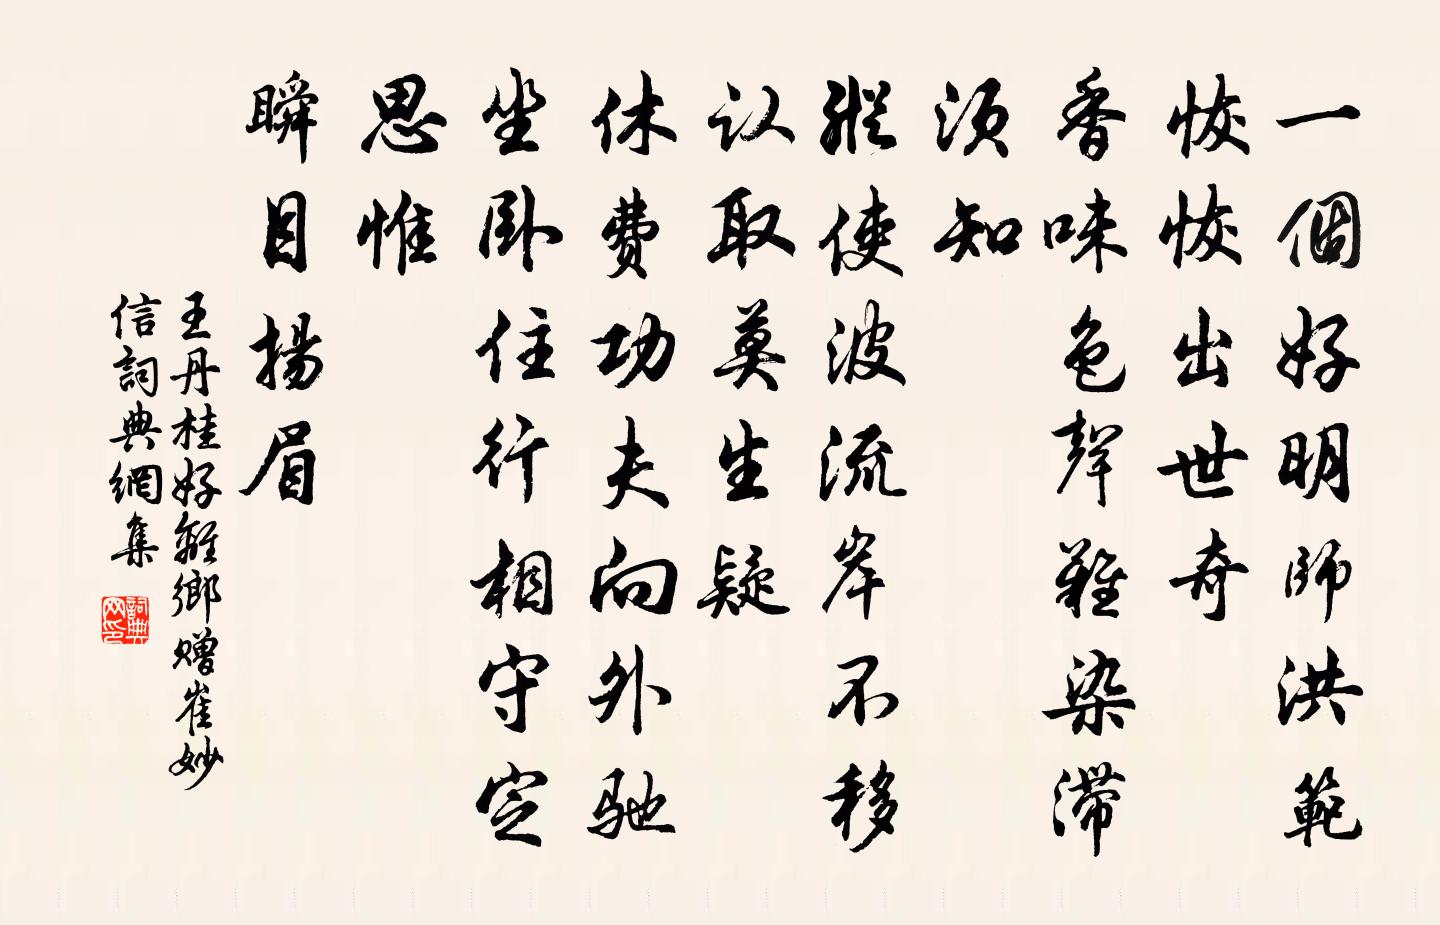 一個好明師洪範
恢恢出世奇
香味色聲難染滯
須知
縱使波流岸不移
认取莫生疑
休費功夫向外馳
坐卧住行相守定
思惟
瞬目揚眉
王丹桂好離鄉赠崔妙
信詞典網集
詞典网印